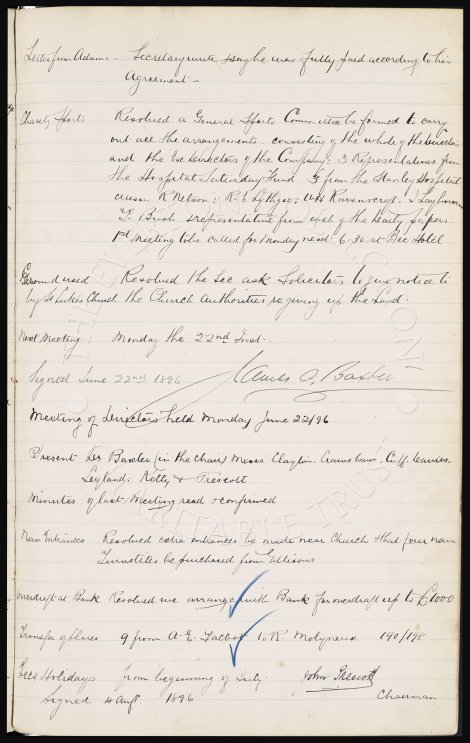 Letter from Adams - Secretary wrote & say he was fully paid according to his
Agreement -
Charity Sports Resolved a General Sports Committee be formed to carry
out all the arrangements - consisting of the whole of the Directors
and the Exe Directors of the Company. 3 Representatives from
the Hospital Saturday Fund & 3 from the Stanley Hospital
R. Nelson; R. E. Lythgoe; W H Ravenscroft. J Layburn
Bush & representative from each of the daily papers.
1st Meeting to be called for Monday next 6.30 at Bee Hotel
Ground used Resolved the Sec ask Solicitors to give notice to
by St Lukes Church the Church Authorities re giving up the Land.
Next Meeting Monday the 22nd Inst.
Signed June 22nd 1896 James C. Baxter
Meeting of Directors held Monday June 22/96
Present Dr Baxter (in the Chair) Messrs Clayton. Crawshaw. Cuff. Davies.
Leyland. Kelly & Prescott
Minutes of last Meeting read & confirmed
New Entrances Resolved extra entrances be made near Church & that four new
Turnstiles be purchased from Ellisons
Overdraft at Bank Resolved we arrange with Bank for overdraft up to £1000
Transfer of Shares 9 from A. E. Talbot to R. Molyneux 190/198
Secs Holidays from beginning of July. John Prescott
Signed 4 Augt 1896 Chairman
THE EVERTON COLLECTION
CHARITABLE TRUST